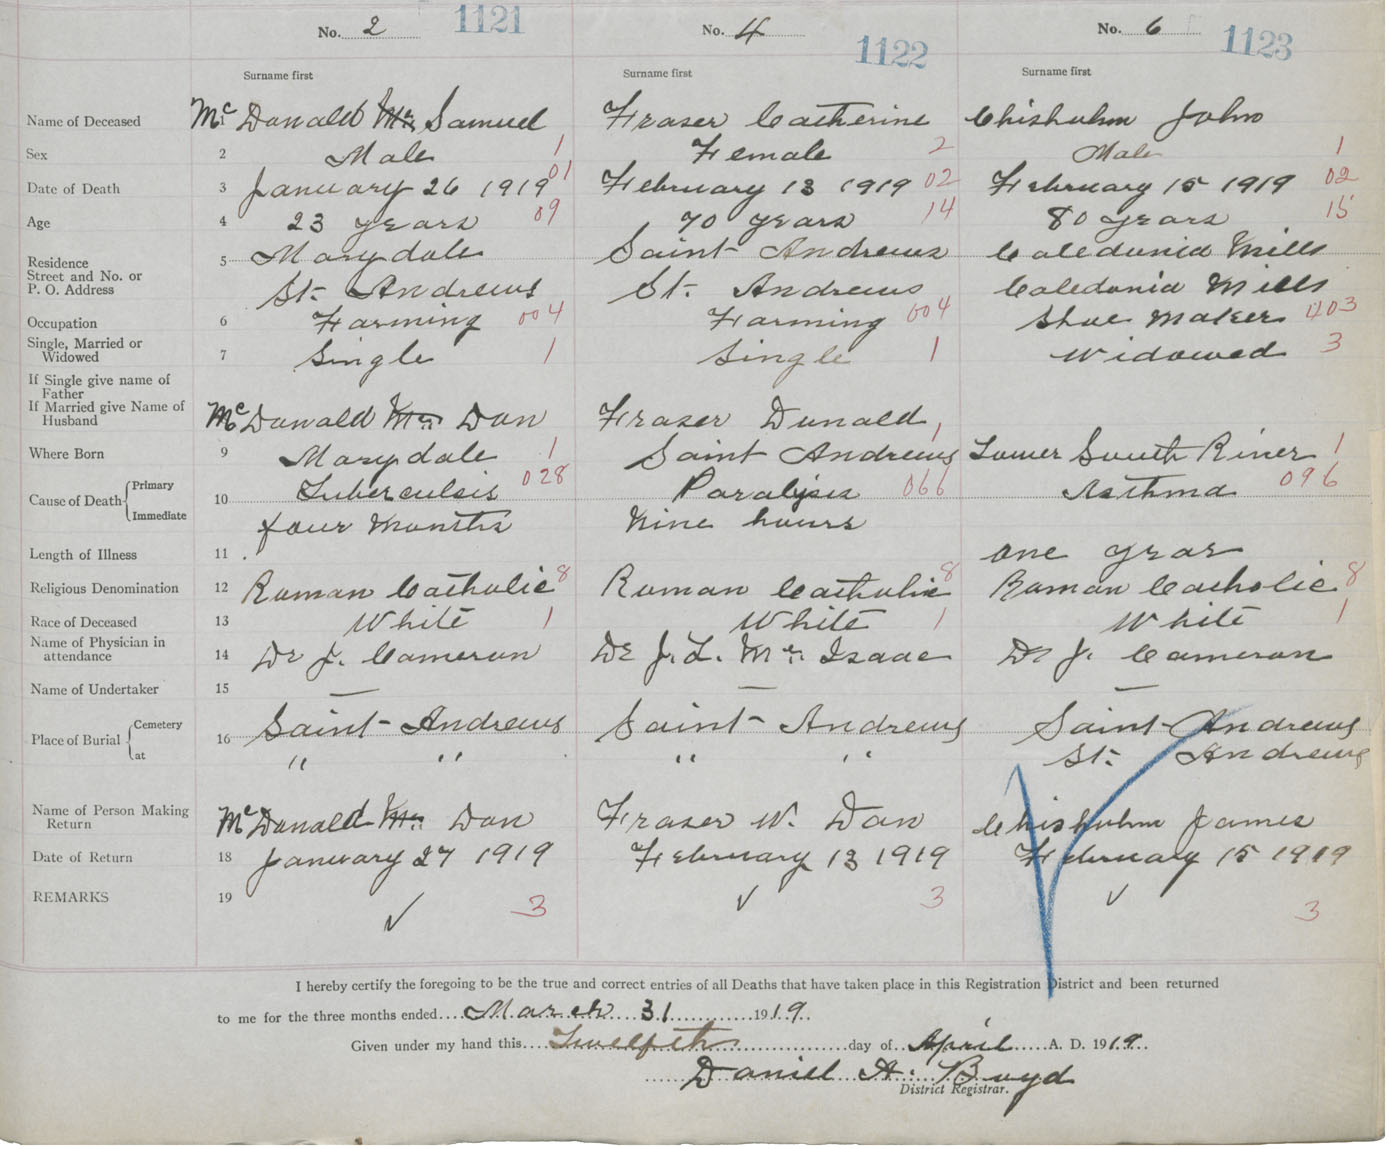 No. 2 1121 No. 4 1122 No. 6 1123
Surname first Surname first Surname first
Name of Deceased McDonald Mc Samuel Fraser Catherine Chisholm John
Sex 2 Male 1 Female 2 Male 1
Date of Death 3 January 26 1919 01 February 13 1919 02 February 15 1919 02
Age 4 23 years 09 70 years 14 80 years 15
Residence 5 Marydale Saint Andrews Caledonia Mills
Street and No. or
P. O. Address St. Andrews St. Andrews Caledonia Mills
Occupation 6 Farming 004 Farming 004 Shoe Maker 403
Single, Married or
Widowed 7 Single 1 Single 1 Widowed 3
If Single give name of
Father
If Married give Name of
Husband McDonald Mc Dan Fraser Donald
Where Born 9 Marydale 1 Saint Andrews 1 Lower South River 1
Cause of Death Primary 10 Tuberculsis 028 Paralysis 066 Asthma 096
Immediate four Months Nine hours
Length of Illness 11 one year
Religious Denomination 12 Roman Catholic 8 Roman Catholic 8 Roman Catholic 8
Race of Deceased 13 White 1 White 1 White 1
Name of Physician in
attendance 14 Dr J. Cameron Dr J. L. Mc Isaac Dr J. Cameron
Name of Undertaker 15 — — —
Place of Burial Cemetery 16 Saint Andrews Saint Andrews Saint Andrews
at " " " " St. Andrews
Name of Person Making
Return McDonald Mc Dan Fraser W. Dan Chisholm James
Date of Return 18 January 27 1919 February 13 1919 February 15 1919
REMARKS 19 ✓ 3 ✓ 3 ✓ 3
I hereby certify the foregoing to be the true and correct entries of all Deaths that have taken place in this Registration District and been returned
to me for the three months ended March 31 1919
Given under my hand this Twelfth day of April A. D. 1919
Daniel A. Boyd
District Registrar.